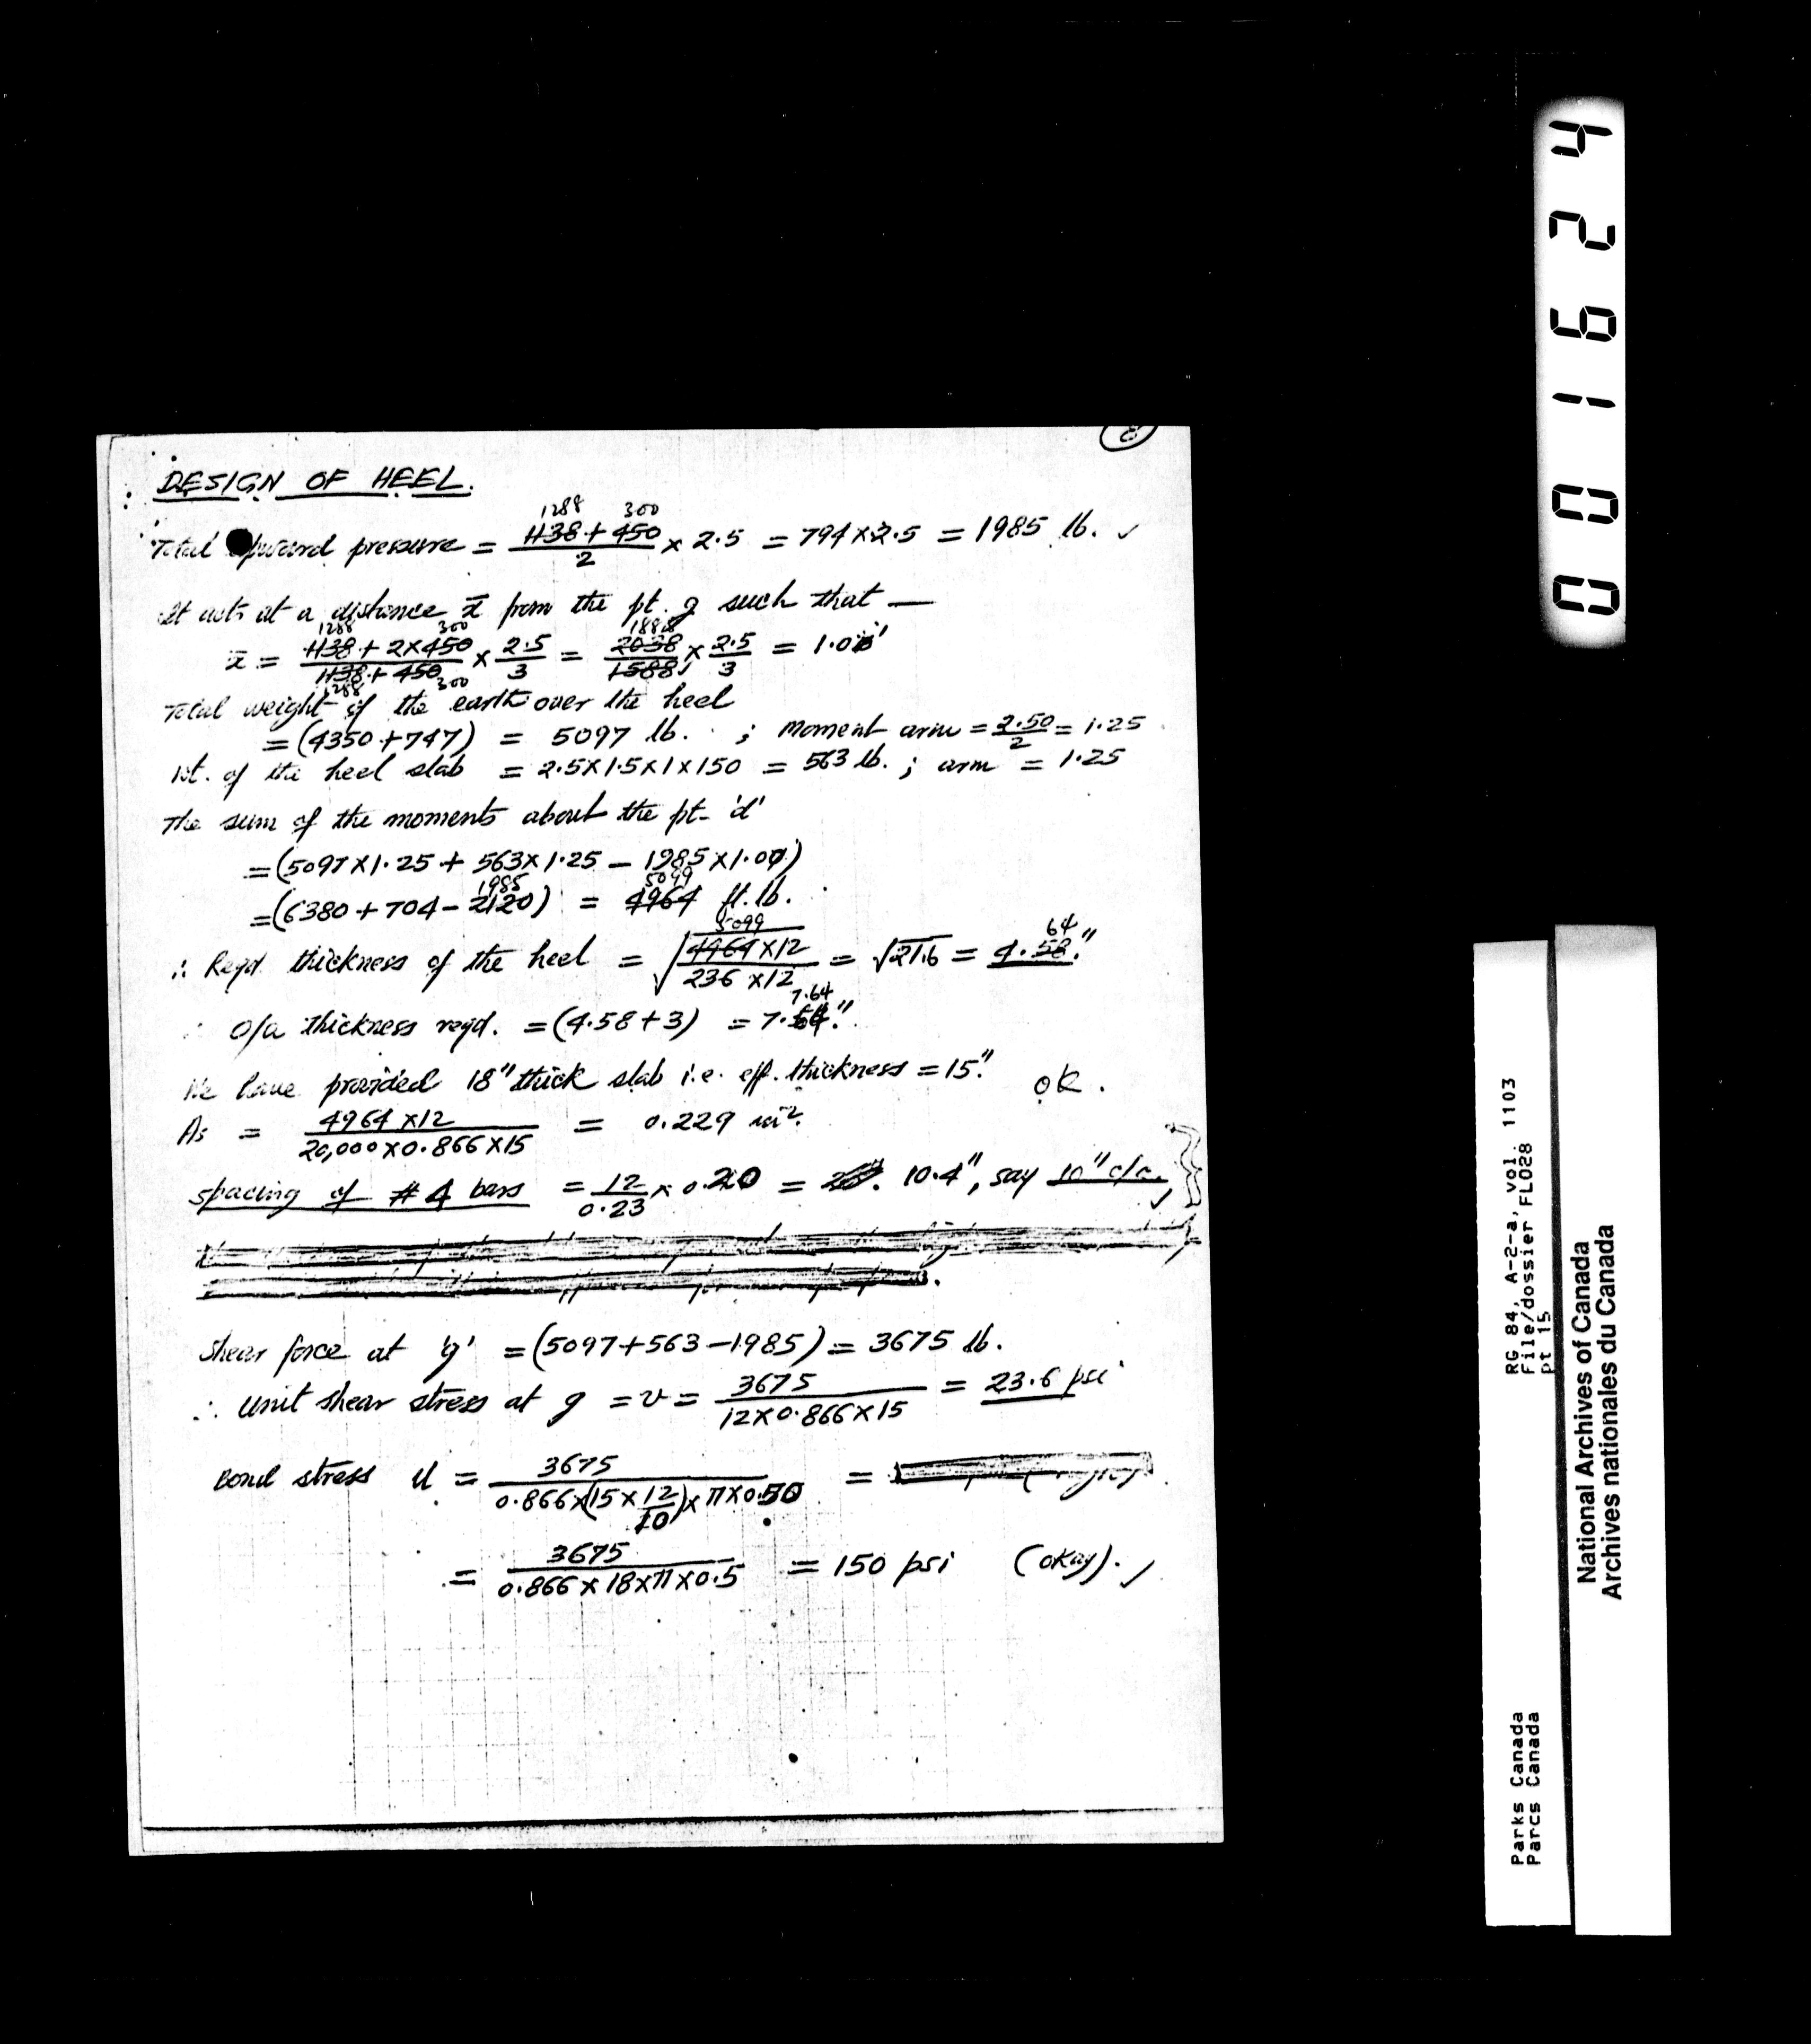 8
DESIGN OF HEEL.
1288 300
Total upward pressure = (1138 + 450)/2 × 2.5 = 794 × 2.5 = 1985 lb. ✓
It acts at a distance x̄ from the pt. g such that —
1288 300 1888
x̄ = (1138 + 2×450)/(1138 + 450) × 2.5/3 = 2038/1588 × 2.5/3 = 1.0'
1288 300
Total weight of the earth over the heel
= (4350 + 747) = 5097 lb. ; Moment arm = 2.50/2 = 1.25
wt. of the heel slab = 2.5×1.5×1×150 = 563 lb. ; arm = 1.25
The sum of the moments about the pt- 'd'
= (5097×1.25 + 563×1.25 – 1985×1.00)
1985 5099
= (6380 + 704 – 2120) = 4964 ft. lb.
5099 64
∴ Reqd. thickness of the heel = √(4964×12/236×12) = √21.6 = 4.58."
7.64
∴ O/a thickness reqd. = (4.58+3) = 7."
We have provided 18" thick slab i.e. eff. thickness = 15." OK.
As = 4964×12/20,000×0.866×15 = 0.229 in².
spacing of #4 bars = 12/0.23 × 0.20 = 10.4", say 10" c/c. ✓
Shear force at 'g' = (5097+563–1985) = 3675 lb.
∴ Unit shear stress at g = v = 3675/12×0.866×15 = 23.6 psi
Bond stress u = 3675/0.866×(15×12/10)×π×0.50 =
= 3675/0.866×18×π×0.5 = 150 psi (okay). ✓
001624
Parks Canada
Parcs Canada
RG 84, A-2-a, vol. 1103
File/dossier FLO28
pt 15
National Archives of Canada
Archives nationales du Canada